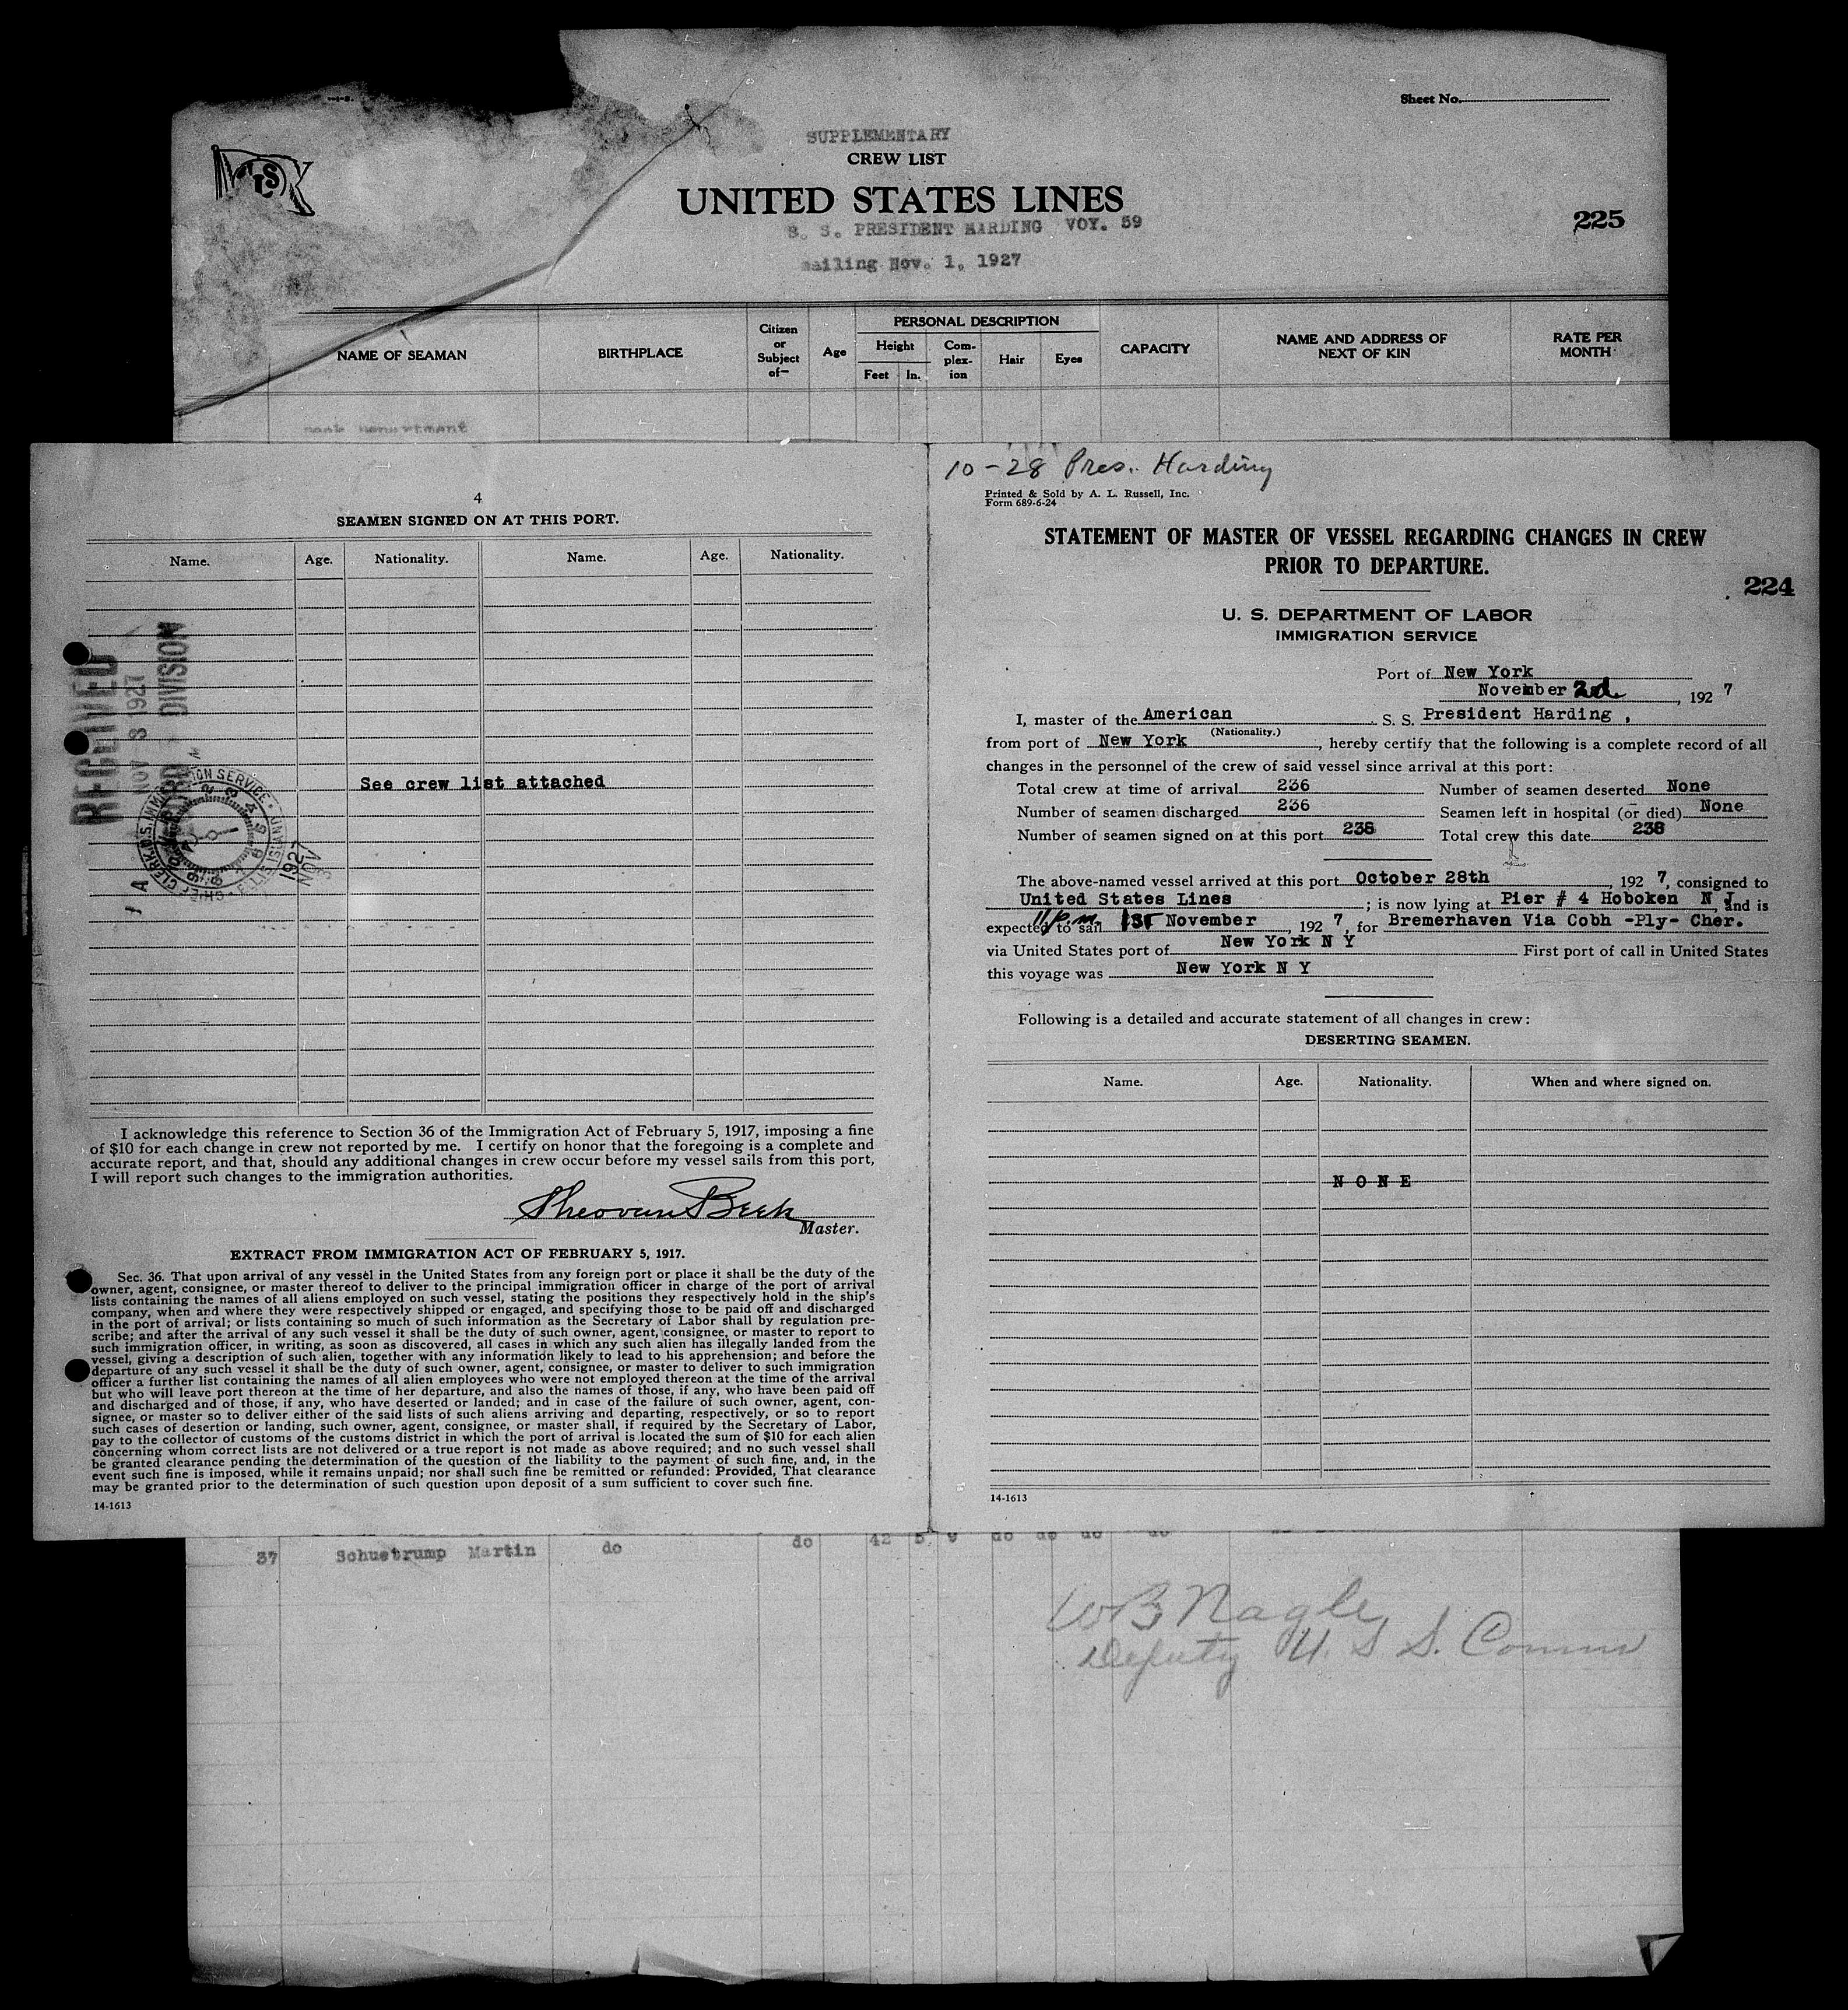 Sheet No.
SUPPLEMENTARY
CREW LIST
UNITED STATES LINES
S. S. PRESIDENT HARDING VOY. 59
225
sailing Nov. 1, 1927
NAME OF SEAMAN
BIRTHPLACE
Citizen or Subject of—
Age
PERSONAL DESCRIPTION
Height
Feet In.
Complexion
Hair
Eyes
CAPACITY
NAME AND ADDRESS OF NEXT OF KIN
RATE PER MONTH
Department
4
SEAMEN SIGNED ON AT THIS PORT.
Name. Age. Nationality. Name. Age. Nationality.
RECEIVED
NOV 3 1927
DIVISION
See crew list attached
1927
NOV
3
I acknowledge this reference to Section 36 of the Immigration Act of February 5, 1917, imposing a fine
of $10 for each change in crew not reported by me. I certify on honor that the foregoing is a complete and
accurate report, and that, should any additional changes in crew occur before my vessel sails from this port,
I will report such changes to the immigration authorities.
Theo van Beek
Master.
EXTRACT FROM IMMIGRATION ACT OF FEBRUARY 5, 1917.
Sec. 36. That upon arrival of any vessel in the United States from any foreign port or place it shall be the duty of the
owner, agent, consignee, or master thereof to deliver to the principal immigration officer in charge of the port of arrival
lists containing the names of all aliens employed on such vessel, stating the positions they respectively hold in the ship's
company, when and where they were respectively shipped or engaged, and specifying those to be paid off and discharged
in the port of arrival; or lists containing so much of such information as the Secretary of Labor shall by regulation pre-
scribe; and after the arrival of any such vessel it shall be the duty of such owner, agent, consignee, or master to report to
such immigration officer, in writing, as soon as discovered, all cases in which any such alien has illegally landed from the
vessel, giving a description of such alien, together with any information likely to lead to his apprehension; and before the
departure of any such vessel it shall be the duty of such owner, agent, consignee, or master to deliver to such immigration
officer a further list containing the names of all alien employees who were not employed thereon at the time of the arrival
but who will leave port thereon at the time of her departure, and also the names of those, if any, who have been paid off
and discharged and of those, if any, who have deserted or landed; and in case of the failure of such owner, agent, con-
signee, or master so to deliver either of the said lists of such aliens arriving and departing, respectively, or so to report
such cases of desertion or landing, such owner, agent, consignee, or master shall, if required by the Secretary of Labor,
pay to the collector of customs of the customs district in which the port of arrival is located the sum of $10 for each alien
concerning whom correct lists are not delivered or a true report is not made as above required; and no such vessel shall
be granted clearance pending the determination of the question of the liability to the payment of such fine, and, in the
event such fine is imposed, while it remains unpaid; nor shall such fine be remitted or refunded: Provided, That clearance
may be granted prior to the determination of such question upon deposit of a sum sufficient to cover such fine.
14-1613
10-28 Pres. Harding
Printed & Sold by A. L. Russell, Inc.
Form 689-6-24
STATEMENT OF MASTER OF VESSEL REGARDING CHANGES IN CREW
PRIOR TO DEPARTURE.
224
U. S. DEPARTMENT OF LABOR
IMMIGRATION SERVICE
Port of New York
November 2d, 1927
I, master of the American S. S. President Harding,
(Nationality.)
from port of New York, hereby certify that the following is a complete record of all
changes in the personnel of the crew of said vessel since arrival at this port:
Total crew at time of arrival 236 Number of seamen deserted None
Number of seamen discharged 236 Seamen left in hospital (or died) None
Number of seamen signed on at this port 238 Total crew this date 238
The above-named vessel arrived at this port October 28th, 1927, consigned to
United States Lines; is now lying at Pier # 4 Hoboken N J, and is
expected to sail 11 p.m. 1st November, 1927, for Bremerhaven Via Cobh -Ply- Cher.
via United States port of New York N Y First port of call in United States
this voyage was New York N Y
Following is a detailed and accurate statement of all changes in crew:
DESERTING SEAMEN.
Name. Age. Nationality. When and where signed on.
NONE
14-1613
42 5 9 do do do do
37 Schuetrump Martin do do
W B Nagle
Deputy U. S S. Comm